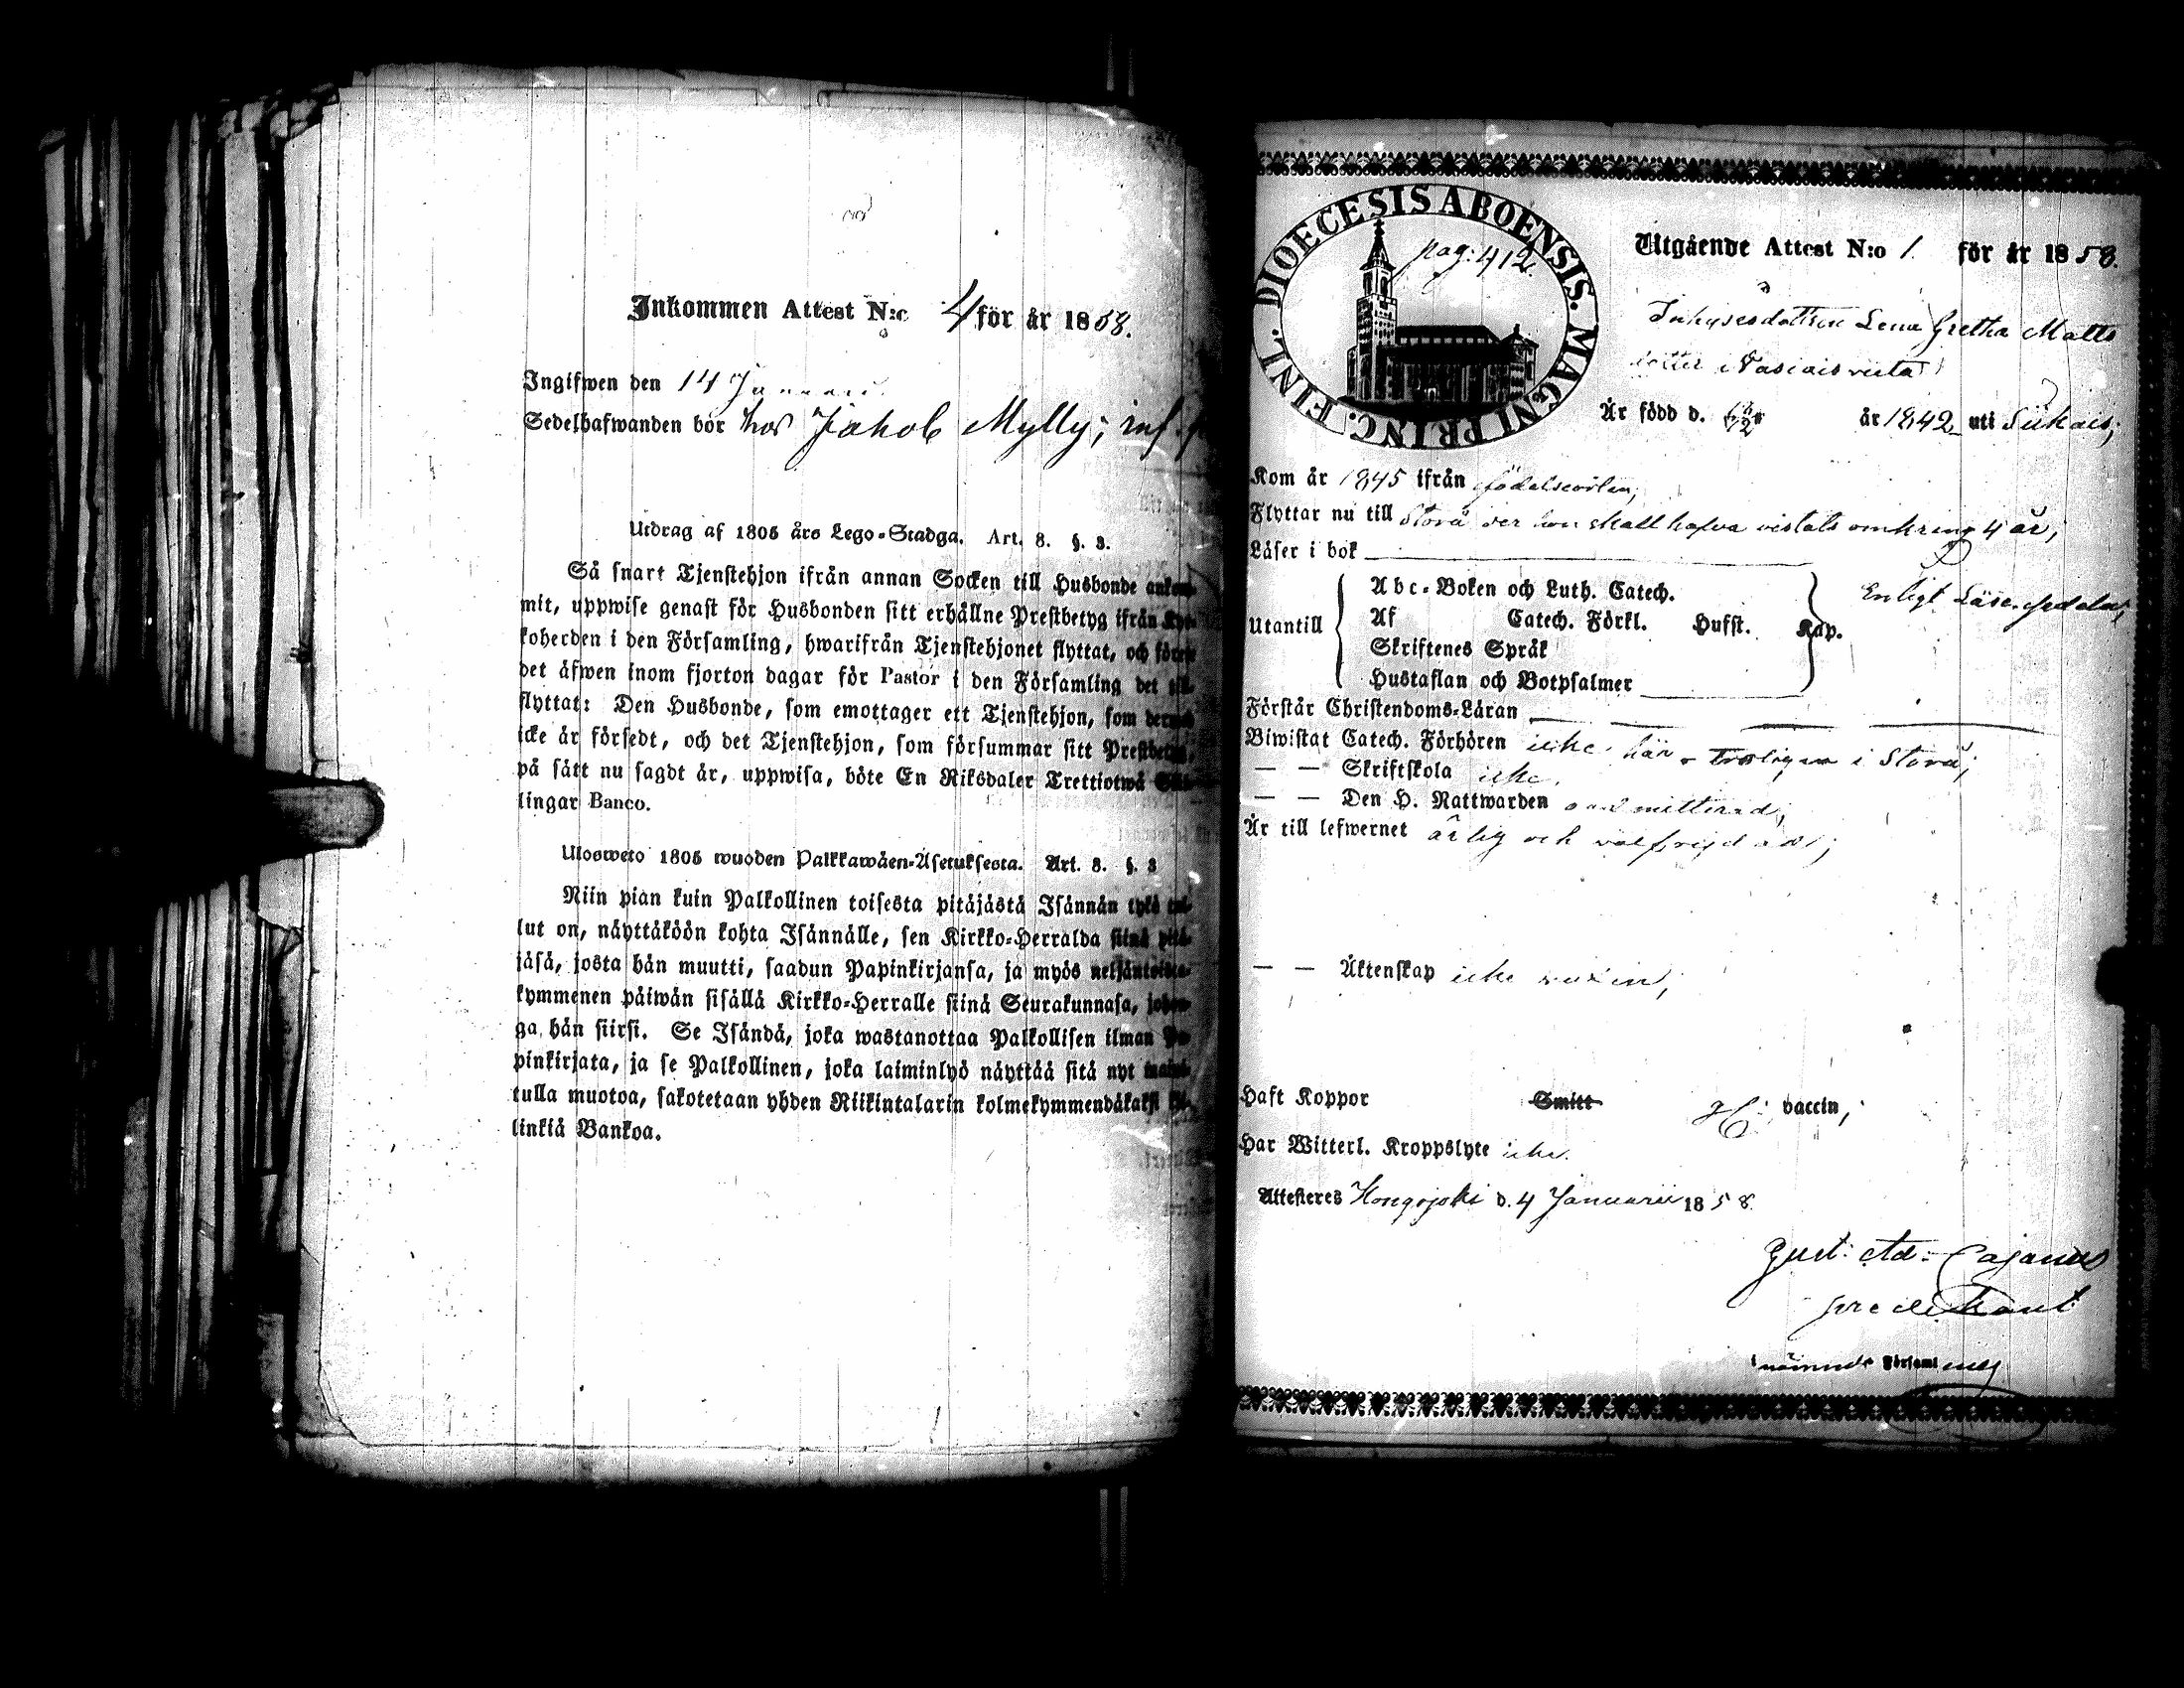 Inkommen Attest N:o 4 för år 1858.
Ingifwen den 14 Januarii.
Sedelhafwanden bor hos Jakob Mylly; inf.
Utdrag af 1805 års Lego-Stadga. Art. 8. §. 3.
Så snart Tjenstehjon ifrån annan Socken till Husbonde ankom-
mit, uppwise genast för Husbonden sitt erhållne Prestbetyg ifrån Kyr-
koherden i den Församling, hwarifrån Tjenstehjonet flyttat, och förete
det äfwen inom fjorton dagar för Pastor i den Församling det till-
flyttat: Den Husbonde, som emottager ett Tjenstehjon, som dermed
icke är försedt, och det Tjenstehjon, som försummar sitt Prestbetyg,
på sätt nu sagdt är, uppwisa, böte En Riksdaler Trettiotwå Skil-
lingar Banco.
Ulosweto 1805 wuoden Palkkawäen-Asetuksesta. Art. 8. §. 3
Niin pian kuin Palkollinen toisesta pitäjästä Isännän tykö tul-
lut on, näyttäköön kohta Isännälle, sen Kirkko-Herralda siinä pitä-
jäsä, josta hän muutti, saadun Papinkirjansa, ja myös neljäntoista-
kymmenen päiwän sisällä Kirkko-Herralle siinä Seurakunnasa, johon-
ga hän siirsi. Se Isändä, joka wastanottaa Palkollisen ilman Pa-
pinkirjata, ja se Palkollinen, joka laiminlyö näyttää sitä nyt maini-
tulla muotoa, sakotetaan yhden Riikintalarin kolmekymmendäkaksi kil-
linkiä Bankoa.
DIOECESIS ABOENSIS. MAGNI PRINC. FINL.
pag: 412.
Utgående Attest N:o 1. för år 1858.
Inhysesdottren Lena Gretha Matts
dotter
Är född d. år 1842 uti Siikais;
Kom år 1845 ifrån födelseorten;
Flyttar nu till Storå der hon skall hafva vistats omkring 4 år;
Läser i bok
Utantill
Abc-Boken och Luth. Catech.
Af Catech. Förkl. Hufst. Kap.
Skriftenes Språk
Hustaflan och Botpsalmer
Enligt Läsesedeln;
Förstår Christendoms-Läran
Biwistat Catech. Förhören icke här - troligen i Storå;
— — Skriftskola icke.
— — Den H. Nattwarden oadmitterad;
Är till lefwernet ärlig och välfrejdad;
— — Äktenskap icke vuxen;
Haft Koppor Smitt vaccin;
Har Witterl. Kroppslyte icke.
Attesteres Hongojoki d. 4 Januarii 1858.
Gust: Ad: Cajanus
predikant
i nämnde Församling